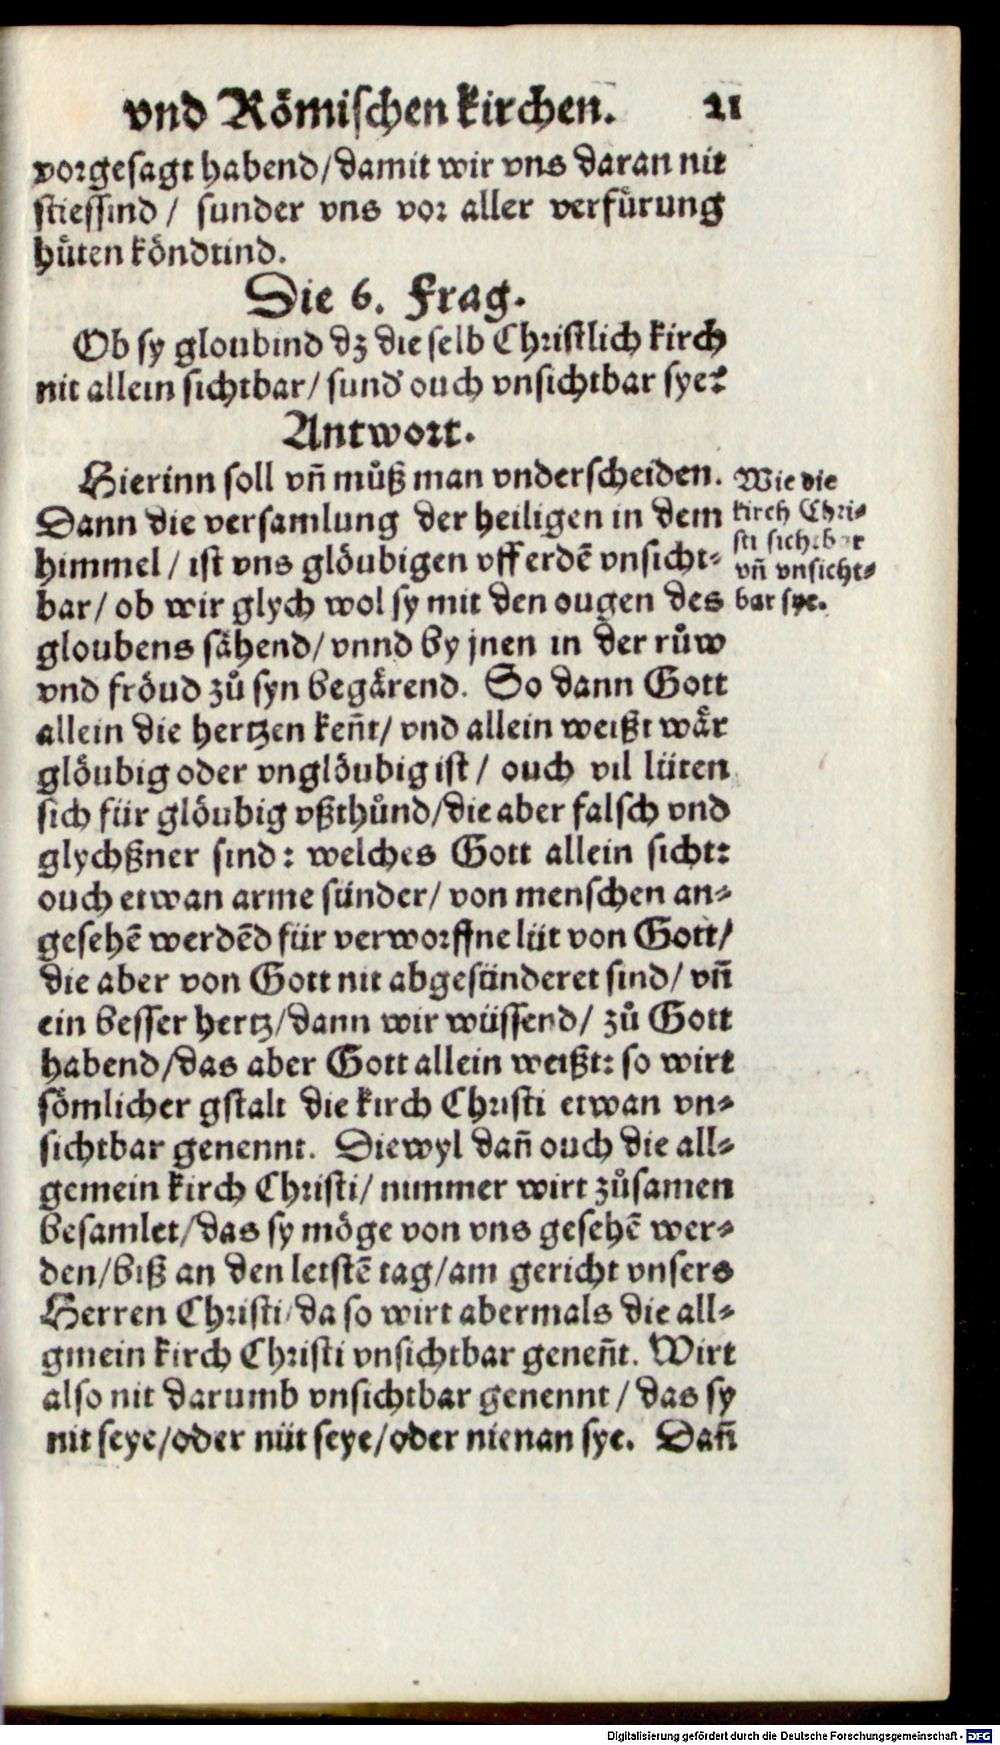 vnd Römischen kirchen. 21
vorgesagt habend/damit wir vns daran nit
stiessind / sunder vns vor aller verfürung
hüten köndtind.
Die 6. Frag.
Ob sy gloubind dz die selb Christlich kirch
nit allein sichtbar/ sund' ouch vnsichtbar sye?
Antwort.
Hierinn soll vn̄ můß man vnderscheiden.
Dann die versamlung der heiligen in dem
himmel / ist vns glöubigen vff erdē vnsicht⸗
bar/ ob wir glych wol sy mit den ougen des
gloubens sähend/ vnnd by jnen in der růw
vnd fröud zů syn begärend. So dann Gott
allein die hertzen ken̄t/ vnd allein weißt wär
glöubig oder vnglöubig ist / ouch vil lüten
sich für glöubig vßthůnd/die aber falsch vnd
glychßner sind: welches Gott allein sicht:
ouch etwan arme sünder/ von menschen an⸗
gesehē werdēd für verworffne lüt von Gott/
die aber von Gott nit abgesünderet sind/ vn̄
ein besser hertz/dann wir wüssend/ zů Gott
habend/das aber Gott allein weißt: so wirt
sömlicher gstalt die kirch Christi etwan vn⸗
sichtbar genennt. Diewyl dan̄ ouch die all⸗
gemein kirch Christi/ nimmer wirt zůsamen
besamlet/das sy möge von vns gesehē wer⸗
den/biß an den letstē tag/am gericht vnsers
Herren Christi/da so wirt abermals die all⸗
gmein kirch Christi vnsichtbar genen̄t. Wirt
also nit darumb vnsichtbar genennt / das sy
nit seye/oder nüt seye/oder nienan sye. Dan̄
Wie die
kirch Chri⸗
sti sichtbar
vn̄ vnsicht⸗
bar sye.
Digitalisierung gefördert durch die Deutsche Forschungsgemeinschaft - DFG